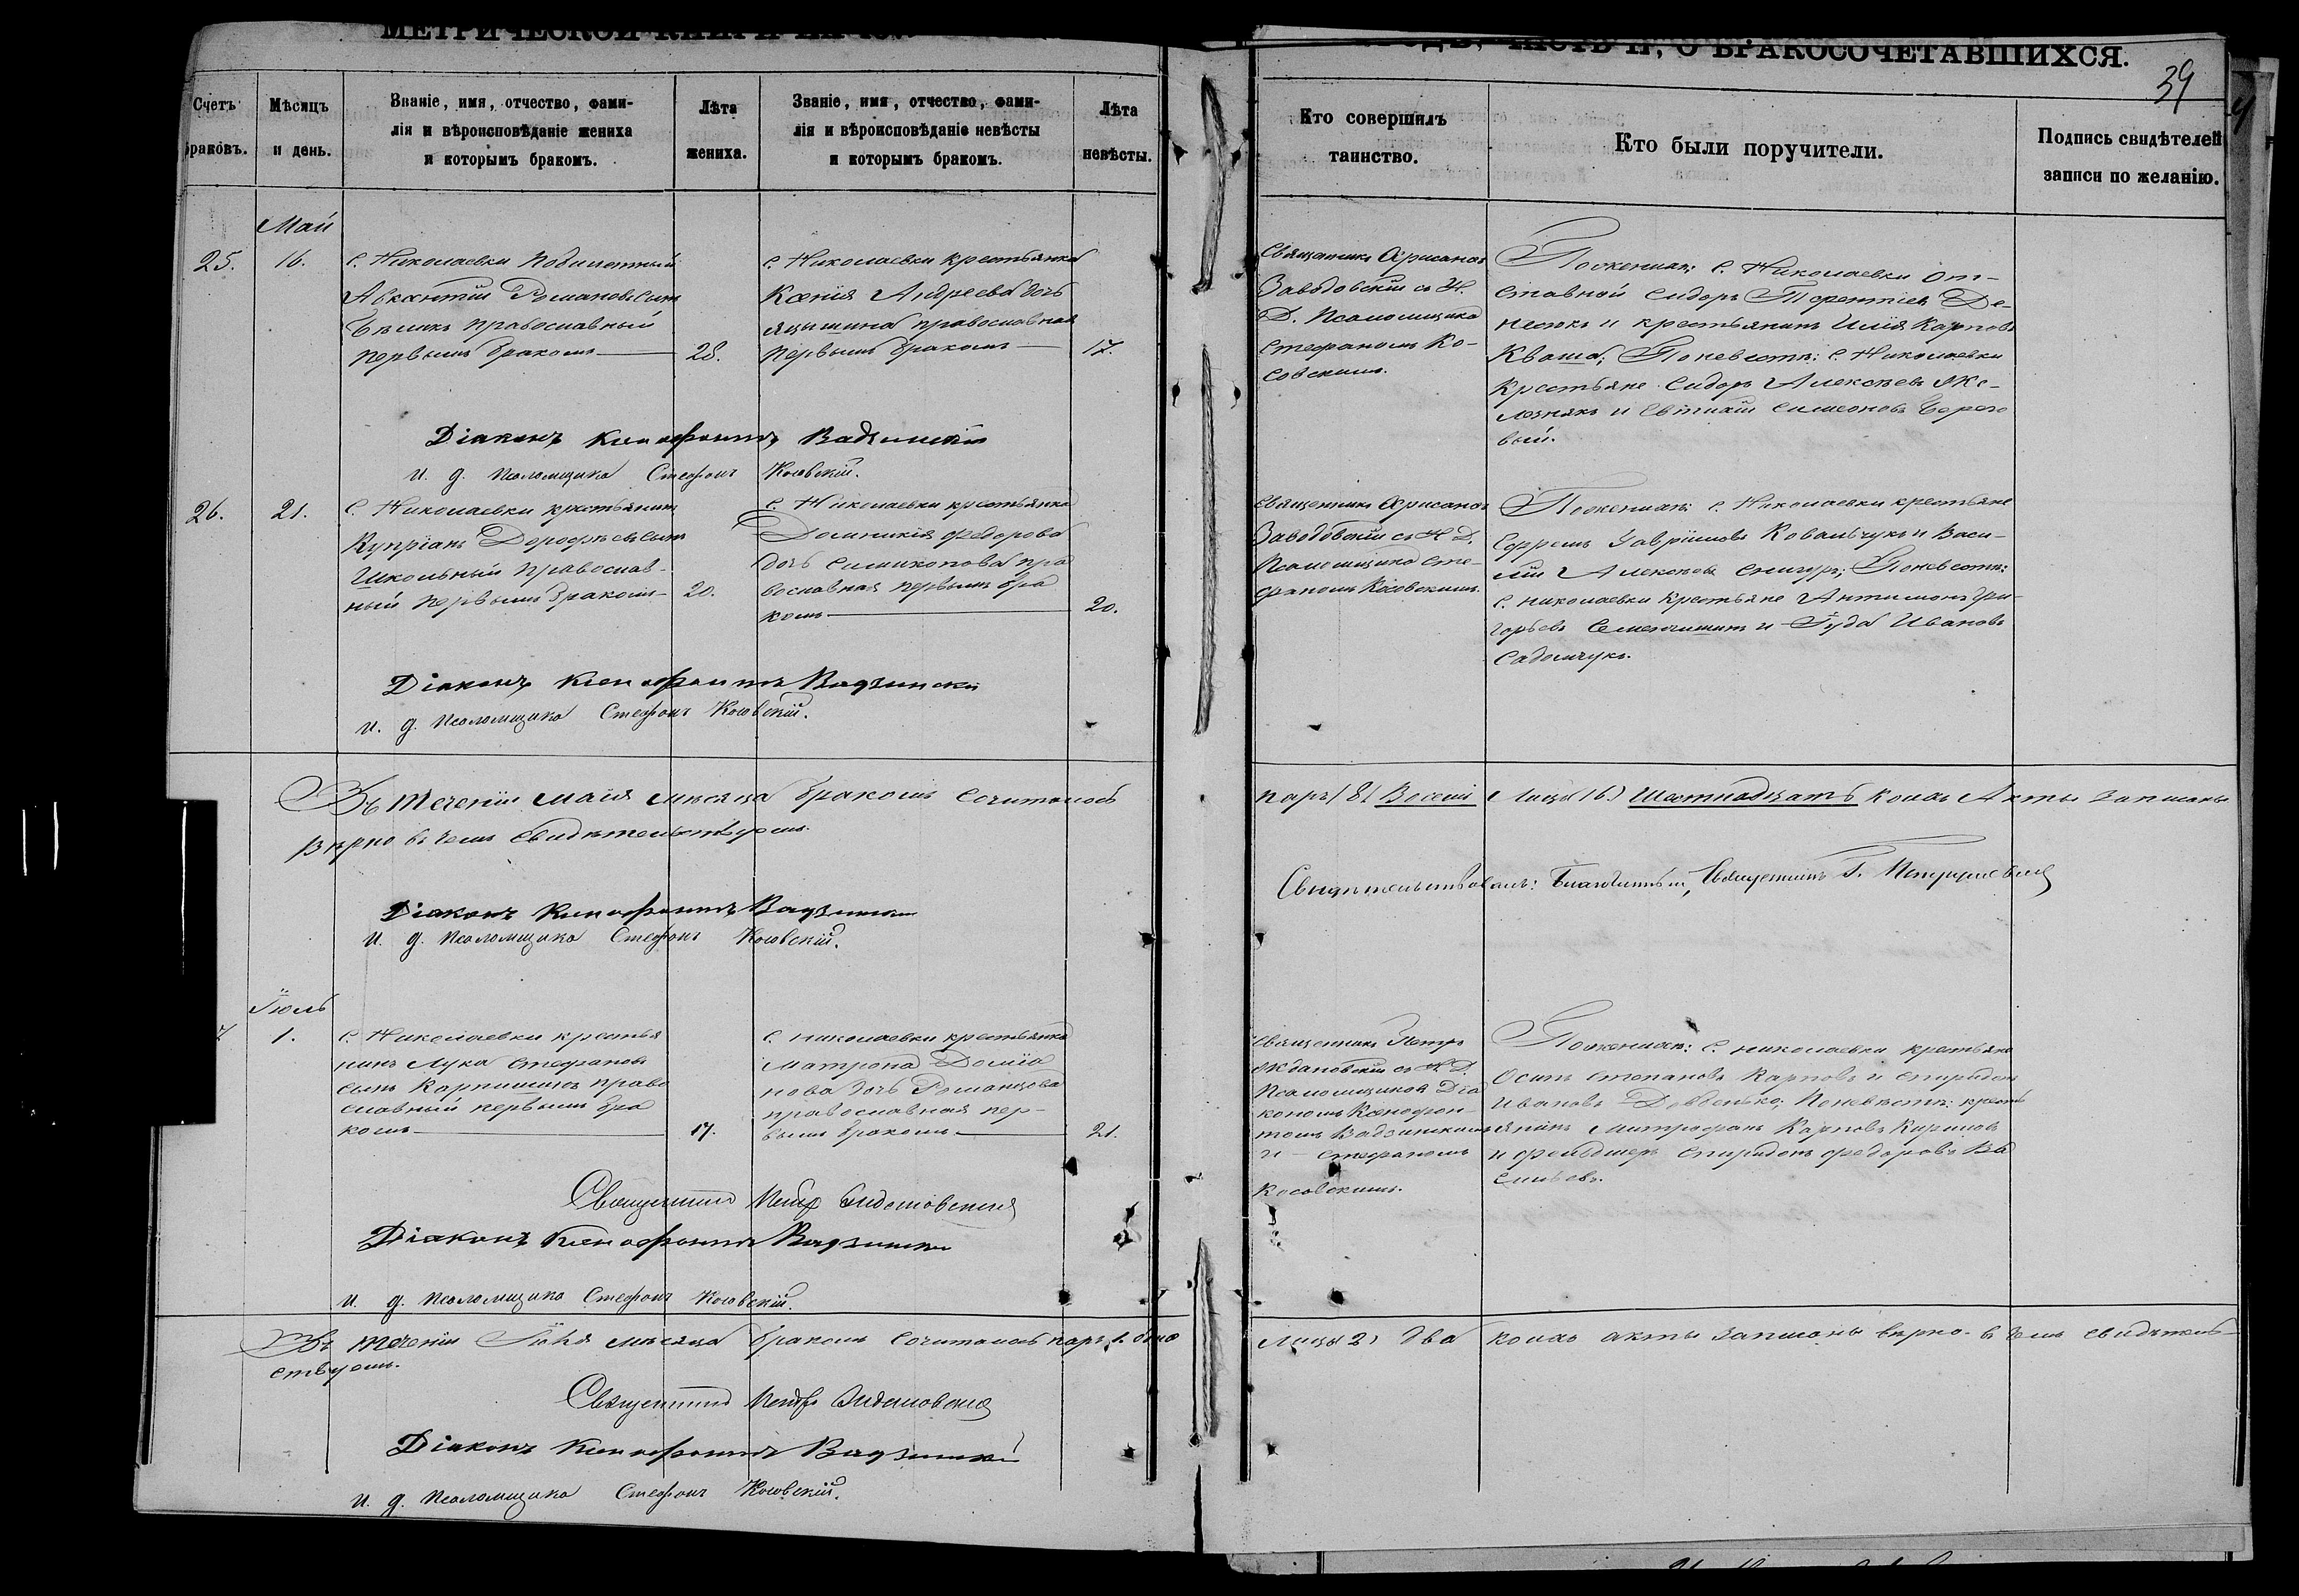 О БРАКОСОЧЕТАВШИХСЯ.
39
Счетъ браковъ.
Мѣсяцъ и день.
Званіе, имя, отчество, фами-
лія и вѣроисповѣданіе жениха
и которымъ бракомъ.
Лѣта
жениха.
Званіе, имя, отчество, фами-
лія и вѣроисповѣданіе невѣсты
и которымъ бракомъ.
Лѣта
невѣсты.
Кто совершилъ
таинство.
Кто были поручители.
Подпись свидѣтелей
записи по желанію.
Май
25.
16.
с. Николаевки
Романовъ сынъ
православный
первымъ бракомъ
28.
с. Николаевки крестьянка
Ксенія Андреева дочь
православная
первымъ бракомъ
17.
Священникъ
Заводовскій съ И.
Д. Псаломщика
Стефаномъ Ко-
совскимъ.
По женихѣ: с. Николаевки от-
ставной Сидоръ Терентіевъ Де-
и крестьянинъ Илія Карповъ
Кваша; По невѣстѣ: с. Николаевки
крестьяне Сидоръ Алексѣевъ Же-
лезнякъ и Симеоновъ Берего
вый.
Діаконъ Ксенофонтъ Вадзинскій
И. д. Псаломщика Стефанъ Косовскій.
26.
21.
с. Николаевки крестьянинъ
Купріанъ Дорофѣевъ сынъ
Школьный православ-
ный первымъ бракомъ
20.
с. Николаевки крестьянка
Домникія Федорова
дочь пра
вославная первымъ бра
комъ
20.
Священникъ
Заводовскій съ И. Д.
Псаломщика Сте-
фаномъ Косовскимъ.
По женихѣ: с. Николаевки крестьяне
Ефремъ Гавріиловъ Ковальчукъ и Васи-
лій Алексѣевъ Снигуръ; По невѣстѣ:
с. Николаевки крестьяне Гри-
горьевъ и Іуда Ивановъ
Садомчукъ.
Діаконъ Ксенофонтъ Вадзинскій
И. д. Псаломщика Стефанъ Косовскій.
Въ теченіи Маія мѣсяца бракомъ сочиталось паръ (8) Восемь Лицъ (16) Шестнадцать коихъ Акты записаны
вѣрно въ чемъ свидѣтельствуемъ.
Діаконъ Ксенофонтъ Вадзинскій
И. д. Псаломщика Стефанъ Косовскій.
Свидѣтельствовалъ: Благочинный, Священникъ Г.
Іюль
1.
с. Николаевки крестья
нинъ Лука Стефановъ
сынъ право
славный первымъ бра
комъ
17.
с. Николаевки крестьянка
Матрона
нова дочь Романцова
православная пер-
вымъ бракомъ
21.
Священникъ Петръ
съ И. Д.
Псаломщиковъ Діа
кономъ Ксенофон-
томъ Вадзинскимъ
и Стефаномъ
Косовскимъ.
По женихѣ: с. Николаевки крестьяне
Осипъ Степановъ Карповъ и Спиридонъ
Ивановъ По невѣстѣ: кресть
янинъ Митрофанъ Карповъ
и фельдшеръ Спиридонъ Федоровъ Ва
сильевъ.
Священникъ Петръ
Діаконъ Ксенофонтъ Вадзинскій
И. д. Псаломщика Стефанъ Косовскій.
Въ теченіи Іюля мѣсяца бракомъ сочиталось паръ 1. одна Лицъ 2) два коихъ акты записаны вѣрно въ чемъ свидѣтель-
ствуемъ.
Священникъ Петръ
Діаконъ Ксенофонтъ Вадзинскій
И. д. Псаломщика Стефанъ Косовскій.